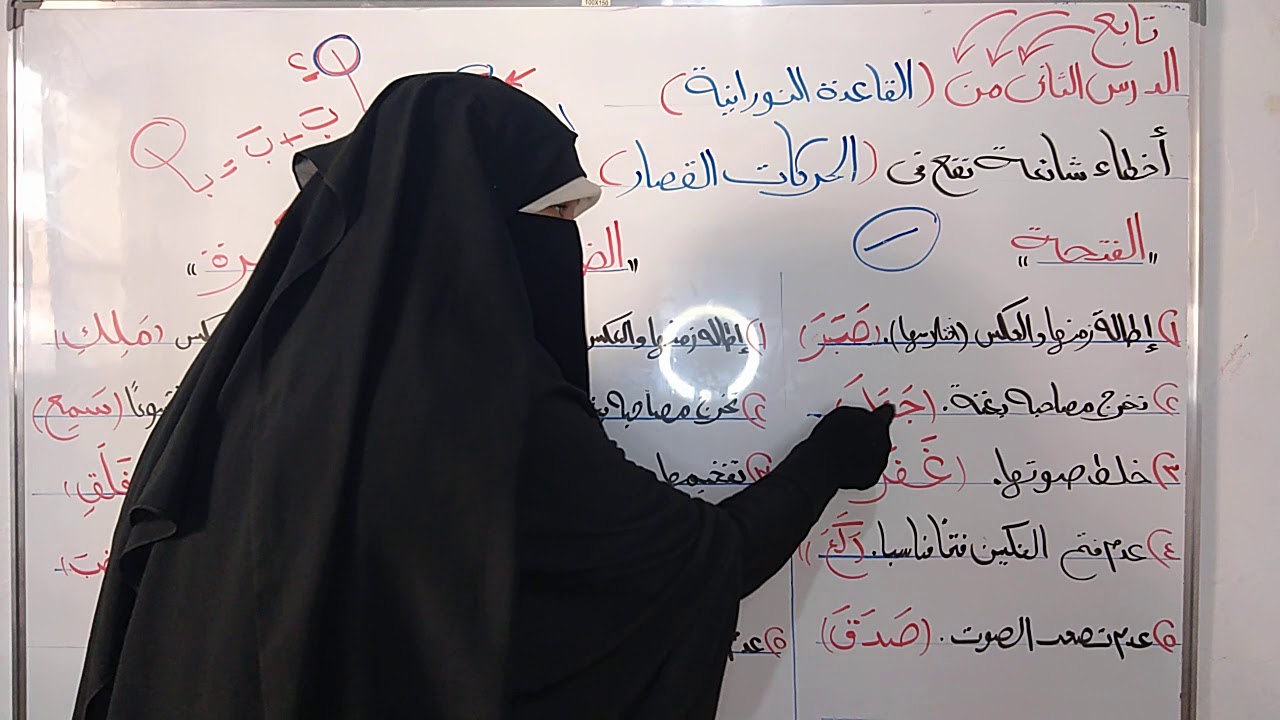 تابع
الدرس الثانى من (القاعدة النورانية)
أخطاء شائعة تقع فى (الحركات القصار)
"الفتحة"
١) إطالة زمنها والعكس (اختلاسها). (صَبَرَ)
٢) تخرج مصاحبة بغنة. (جَعَلَ)
٣) خلط صوتها. (غَفَرَ
٤) عدم فتح الفكين فتحًا مناسبا.
٥) عدم تصعد الصوت. (صَدَقَ)
الض
١) إطالة زمنها والعكس
٢) تخرج مصاحبة
٣) تفخيمها
٥) عدم
رة"
(مَلِكِ)
(سَمِعَ)
فَلَقِ)
بَ + بَ = با
100X150